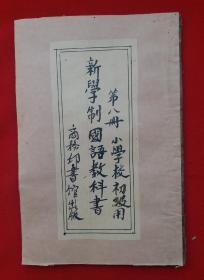 第八册 小學校初級用
新學制國語教科書
商務印書館出版